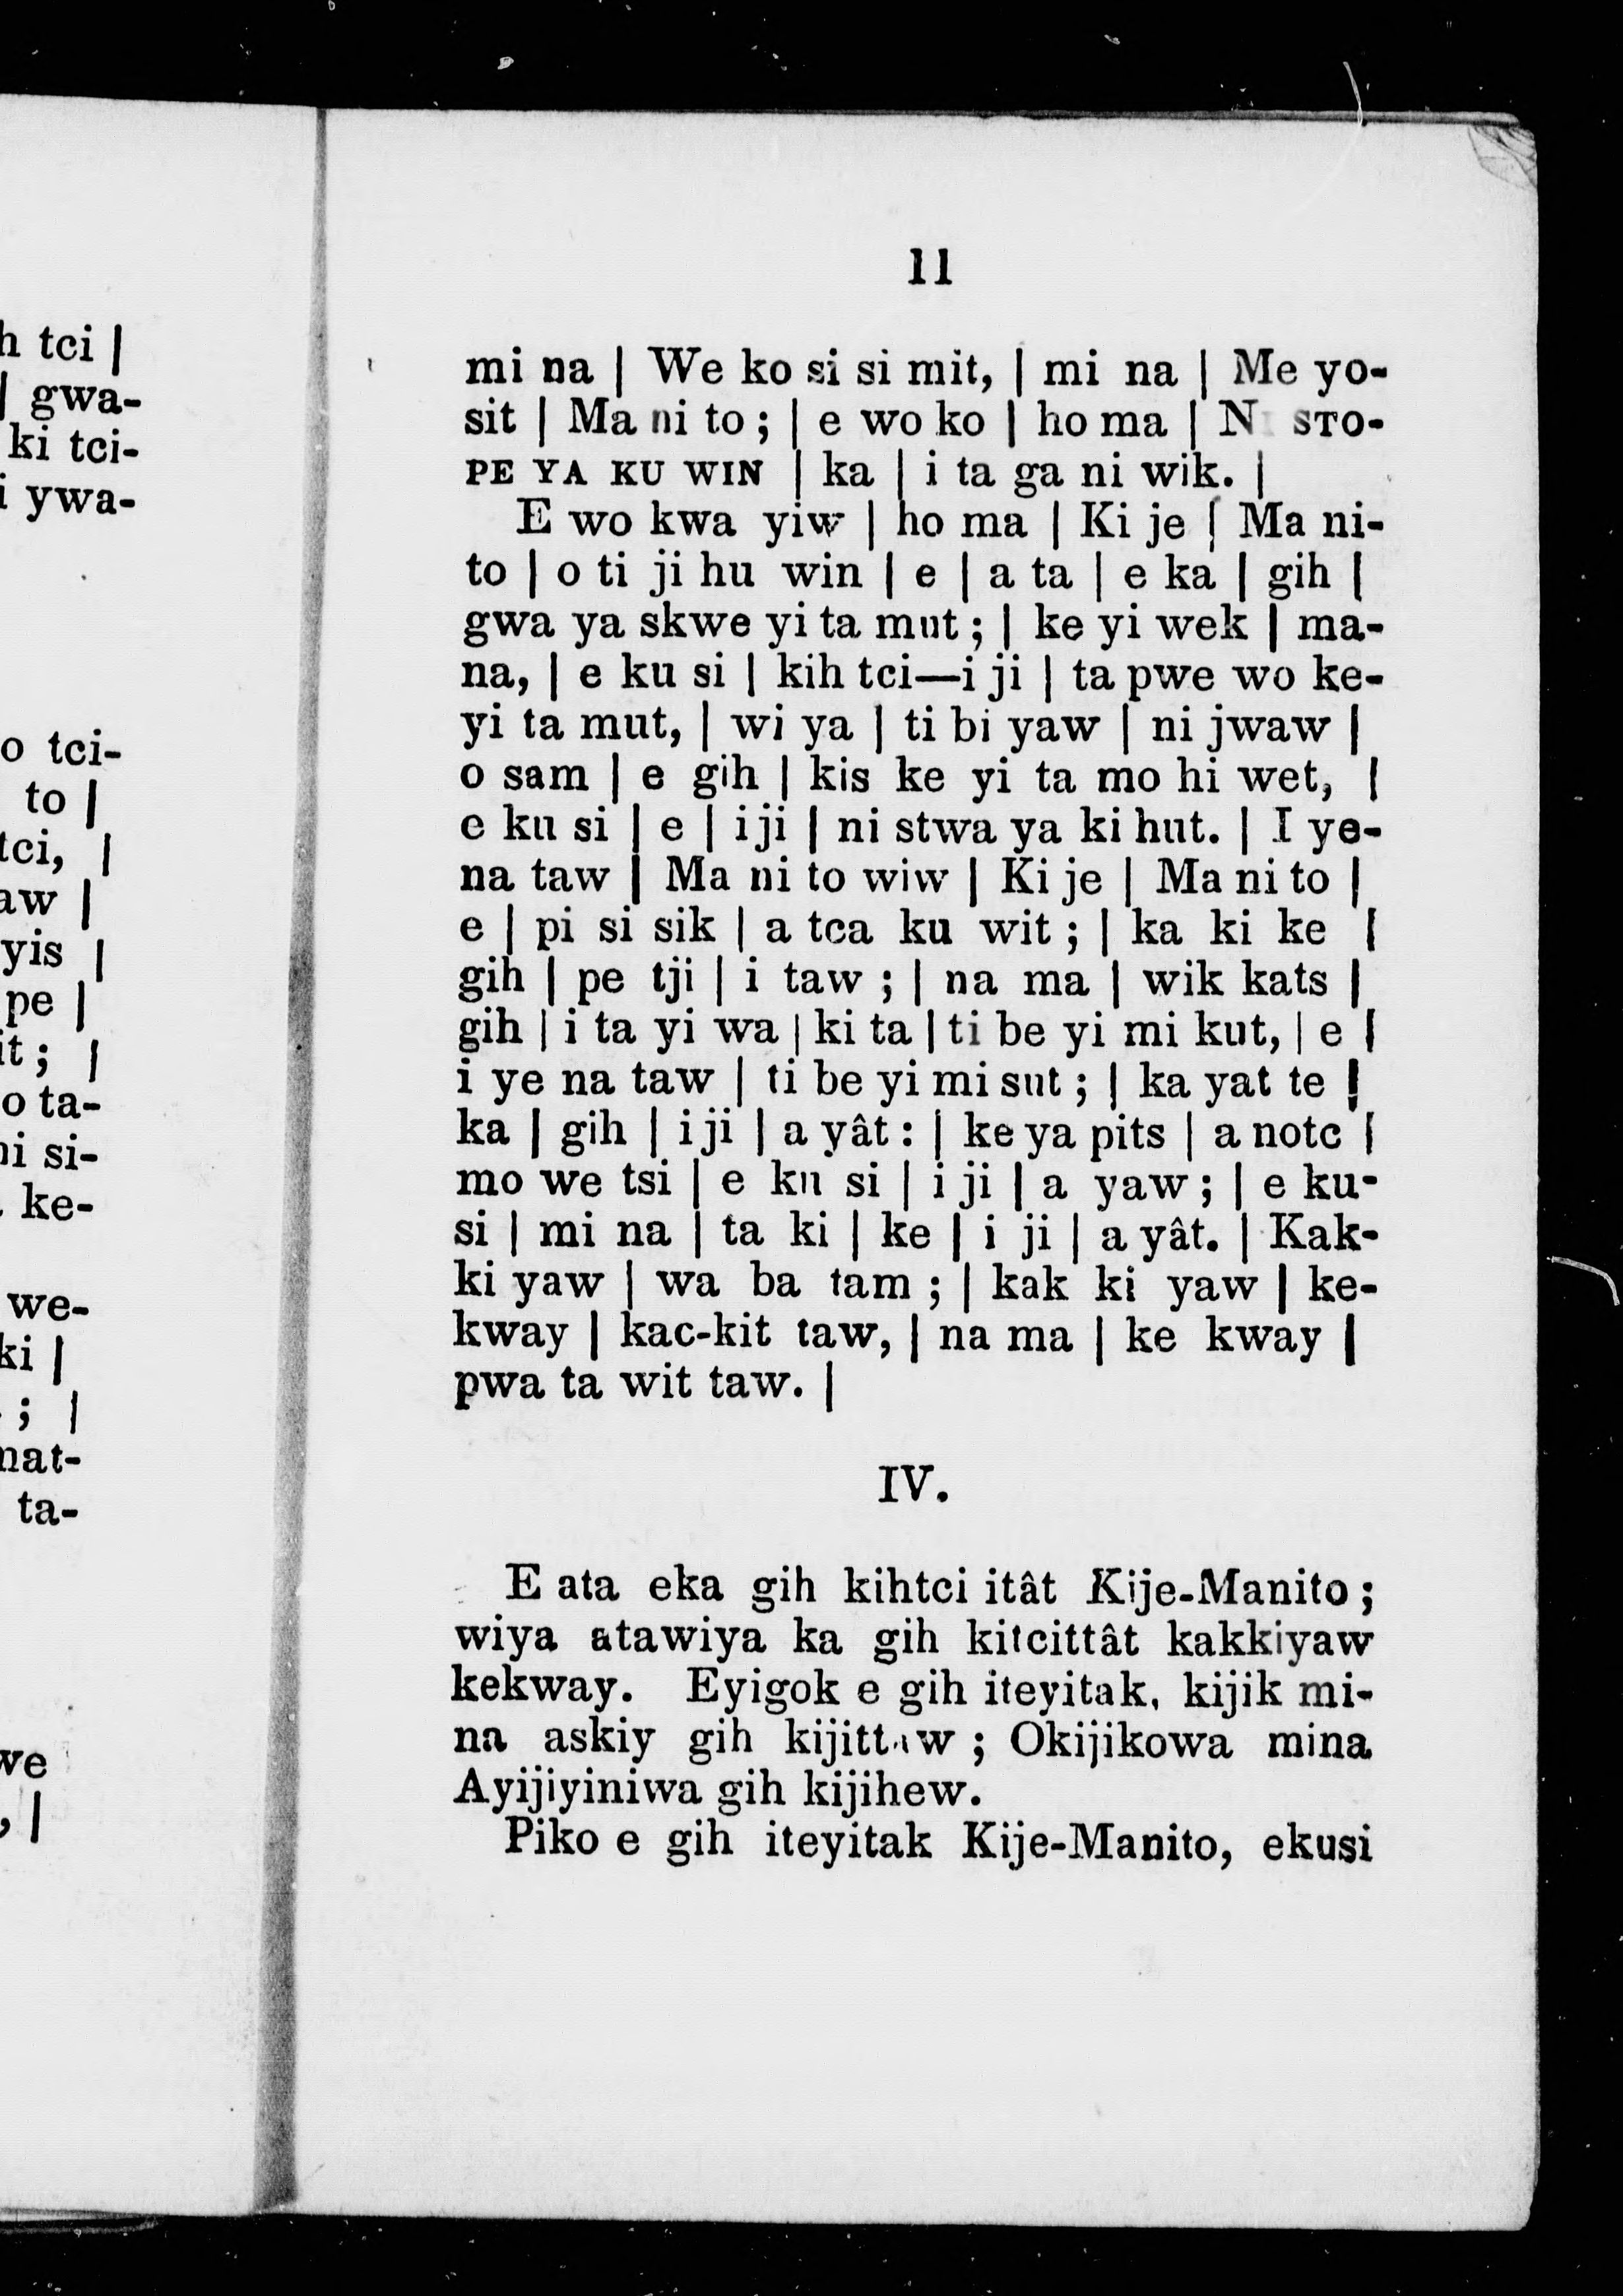 h tci |
| gwa-
ki tci-
i ywa-
o tci-
to |
tci, |
aw |
yis |
pe |
it; |
o ta-
ni si-
ke-
we-
ki |
; |
nat-
ta-
we
, |
11
mi na | We ko si si mit, | mi na | Me yo-
sit | Ma ni to ; | e wo ko | ho ma | N STO-
PE YA KU WIN | ka | i ta ga ni wik. |
E wo kwa yiw | ho ma | Ki je | Ma ni-
to | o ti ji hu win | e | a ta | e ka | gih |
gwa ya skwe yi ta mut ; | ke yi wek | ma-
na, | e ku si | kih tci—i ji | ta pwe wo ke-
yi ta mut, | wi ya | ti bi yaw | ni jwaw |
o sam | e gih | kis ke yi ta mo hi wet, |
e ku si | e | i ji | ni stwa ya ki hut. | I ye-
na taw | Ma ni to wiw | Ki je | Ma ni to |
e | pi si sik | a tca ku wit ; | ka ki ke |
gih | pe tji | i taw ; | na ma | wik kats |
gih | i ta yi wa | ki ta | ti be yi mi kut, | e |
i ye na taw | ti be yi mi sut ; | ka yat te |
ka | gih | i ji | a yât : | ke ya pits | a notc |
mo we tsi | e ku si | i ji | a yaw ; | e ku-
si | mi na | ta ki | ke | i ji | a yât. | Kak-
ki yaw | wa ba tam ; | kak ki yaw | ke-
kway | kac-kit taw, | na ma | ke kway |
pwa ta wit taw. |
IV.
E ata eka gih kihtci itât Kije-Manito ;
wiya atawiya ka gih kitcittât kakkiyaw
kekway. Eyigok e gih iteyitak, kijik mi-
na askiy gih kijittaw ; Okijikowa mina
Ayijiyiniwa gih kijihew.
Piko e gih iteyitak Kije-Manito, ekusi